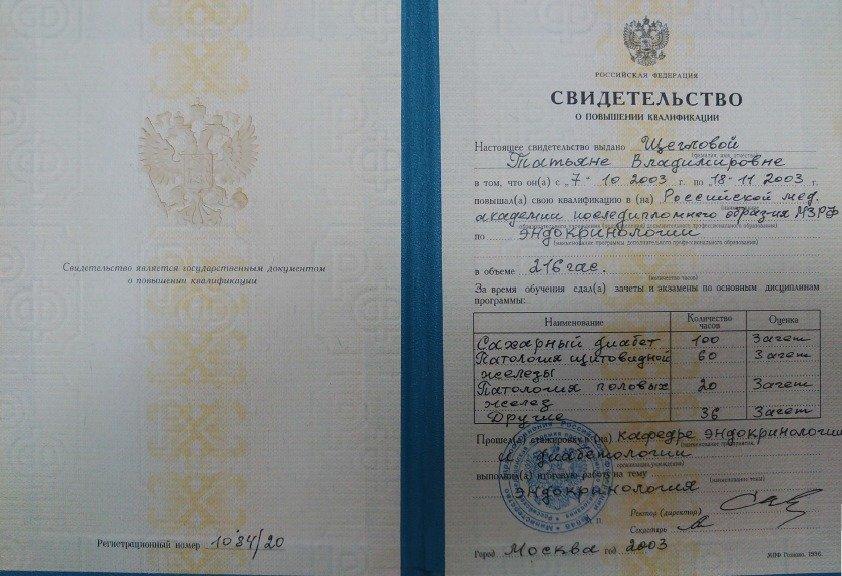 Свидетельство является государственным документом
о повышении квалификации
Регистрационный номер 1034/20
РОССИЙСКАЯ ФЕДЕРАЦИЯ
СВИДЕТЕЛЬСТВО
О ПОВЫШЕНИИ КВАЛИФИКАЦИИ
Настоящее свидетельство выдано Щегловой
(фамилия, имя, отчество)
Татьяне Владимировне
в том, что он(а) с „7" 10 2003 г. по „18" 11 2003 г.
повышал(а) свою квалификацию в (на) Российской мед.
академии последипломного образия МЗРФ
по эндокринологии
(наименование программы дополнительного профессионального образования)
в объеме 216 час.
(количество часов)
За время обучения сдал(а) зачеты и экзамены по основным дисциплинам
программы:
Наименование Количество часов Оценка
Сахарный диабет 100 Зачет
Патология щитовидной 60 Зачет
железы
Патология половых 20 Зачет
желез
Другие 36 Зачет
Прошел(а) стажировку в (на) кафедре эндокринологии
(наименование предприятия,
и диабетологии
организации, учреждения)
выполнил(а) итоговую работу на тему
(наименование темы)
эндокринология
Ректор (директор)
М. П.
Секретарь
Город Москва год 2003
МПФ Гознака. 1996.